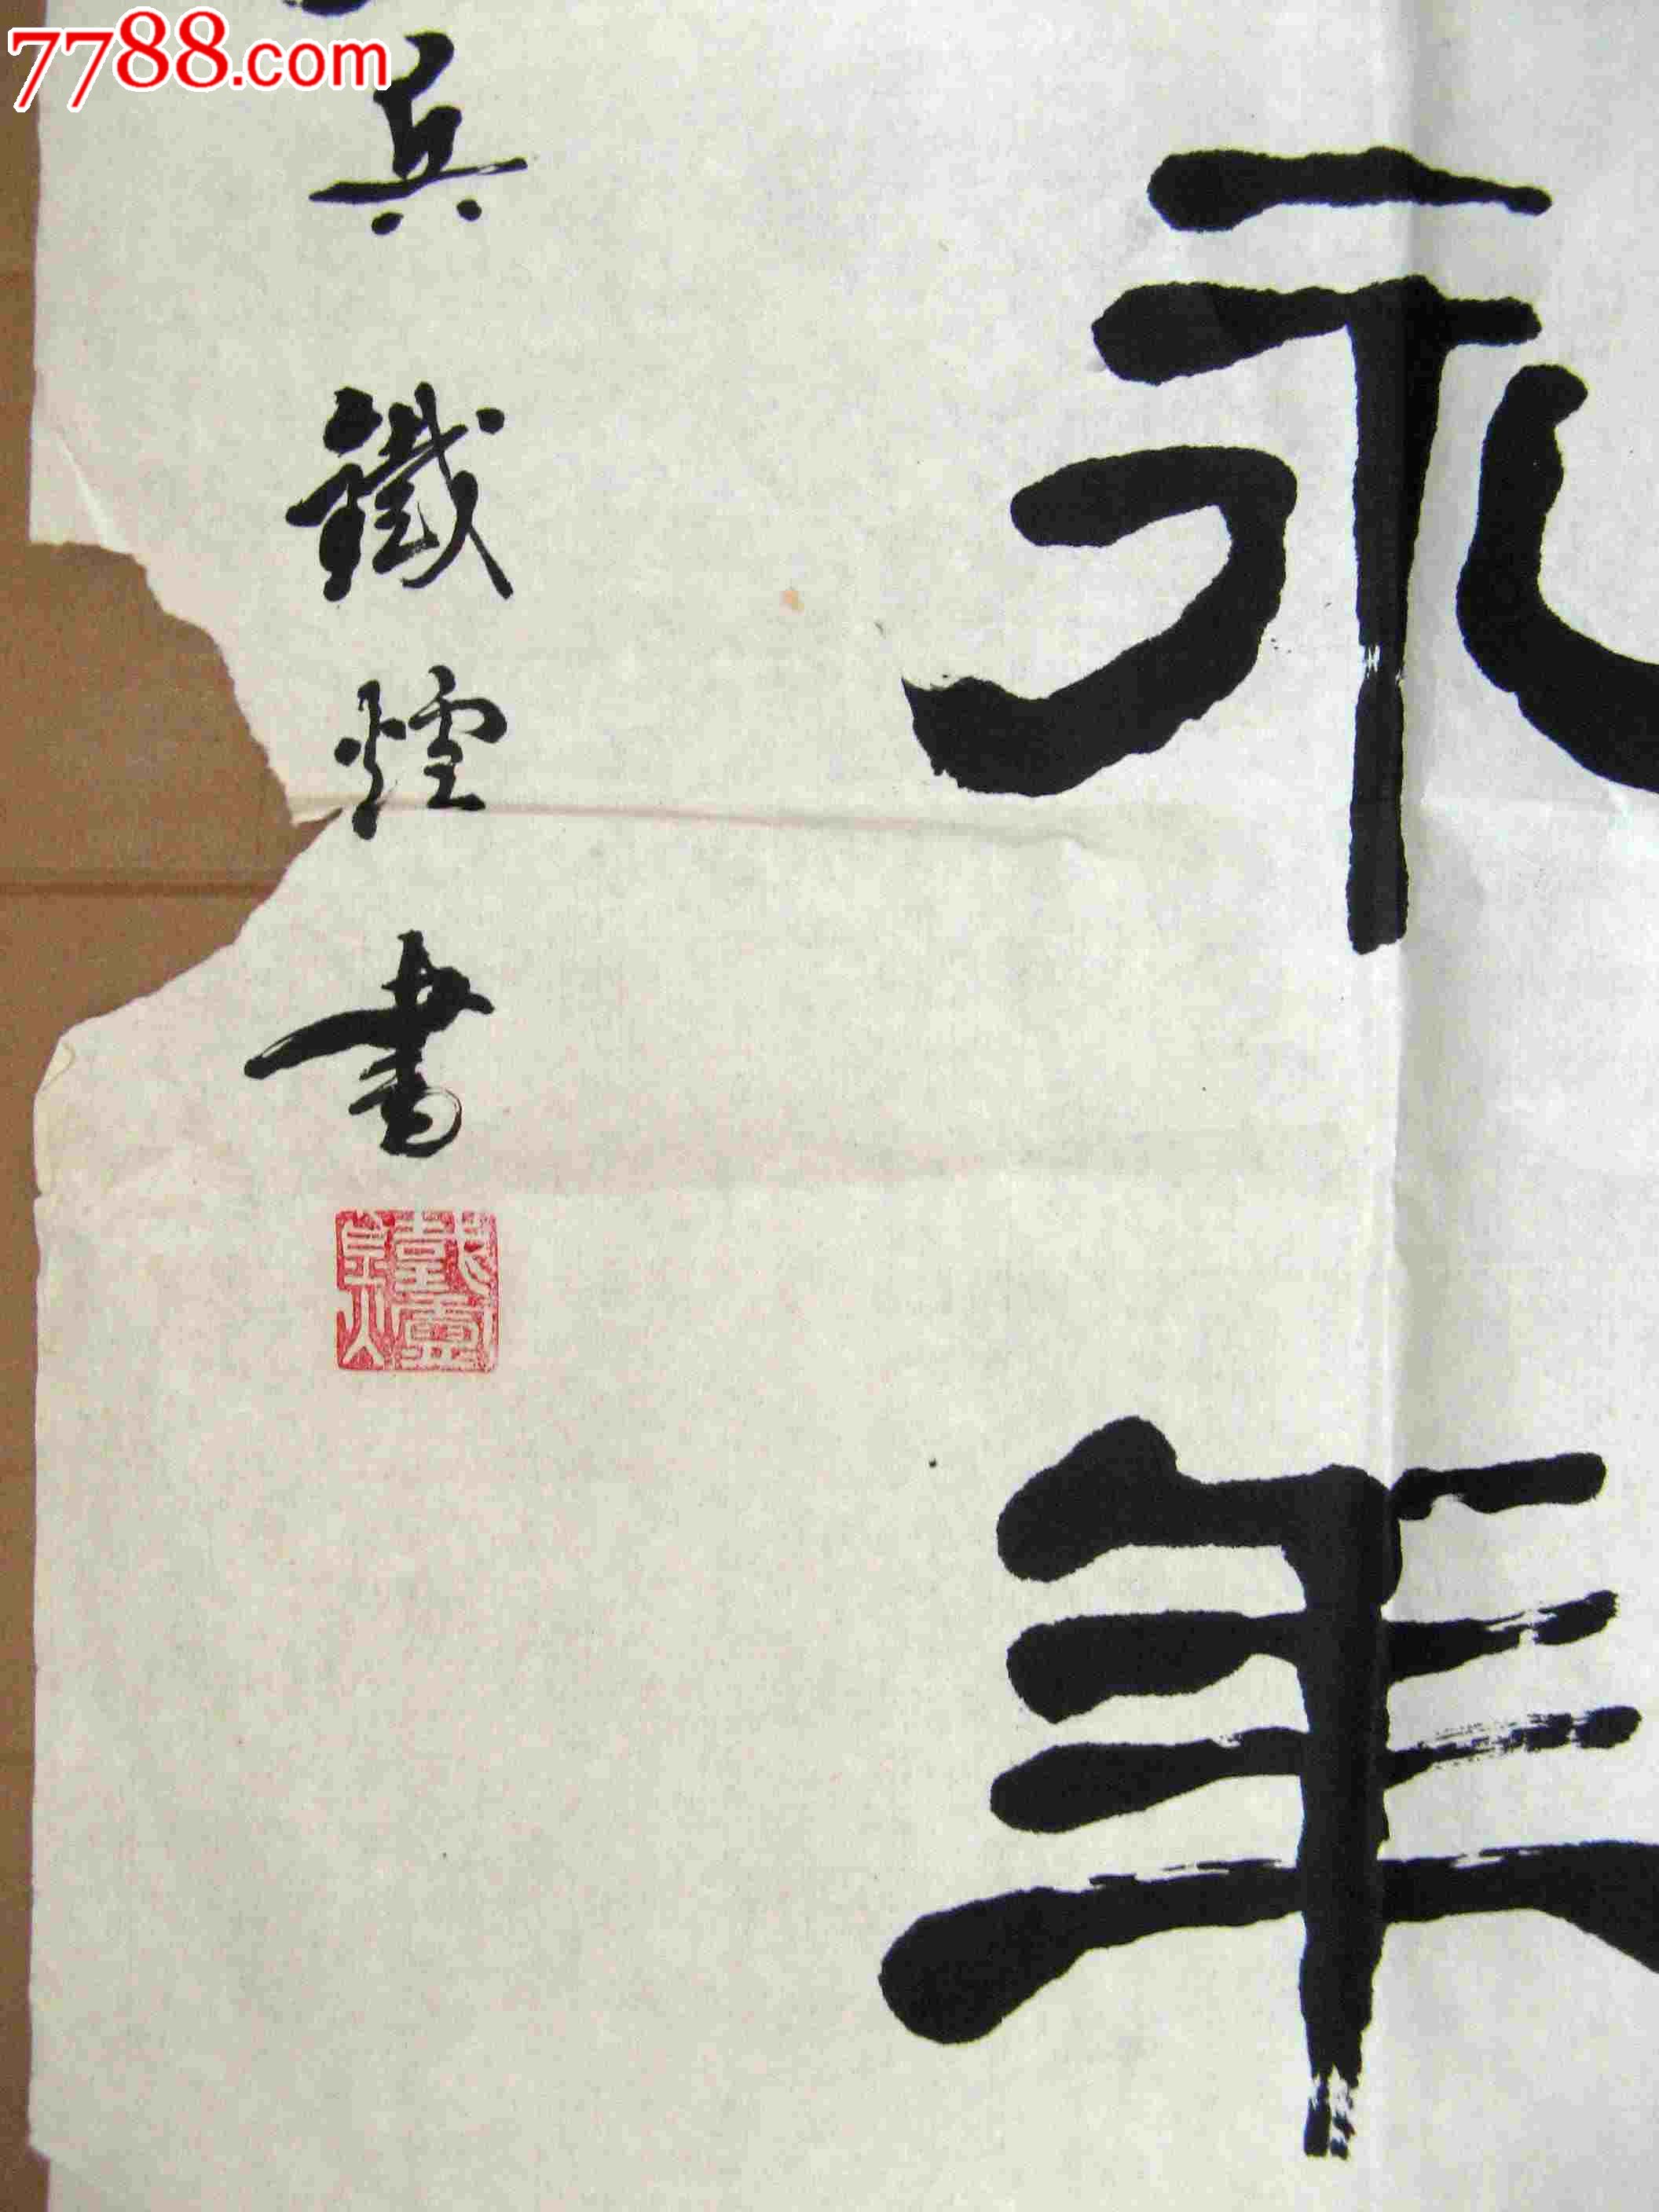 7788.com
永年
兵鐵煙書